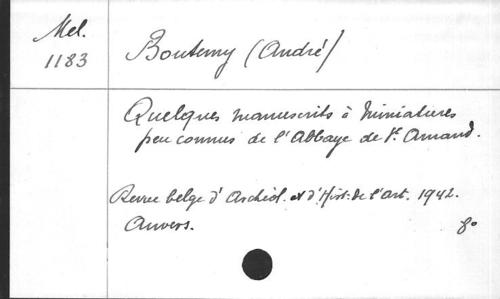 Mel.
1183
Boutemy (André)
Quelques manuscrits à miniatures
peu connus de l'Abbaye de St. Amand.
Revue belge d'Archéol. et d'Hist. de l'art. 1942.
Anvers. 8°